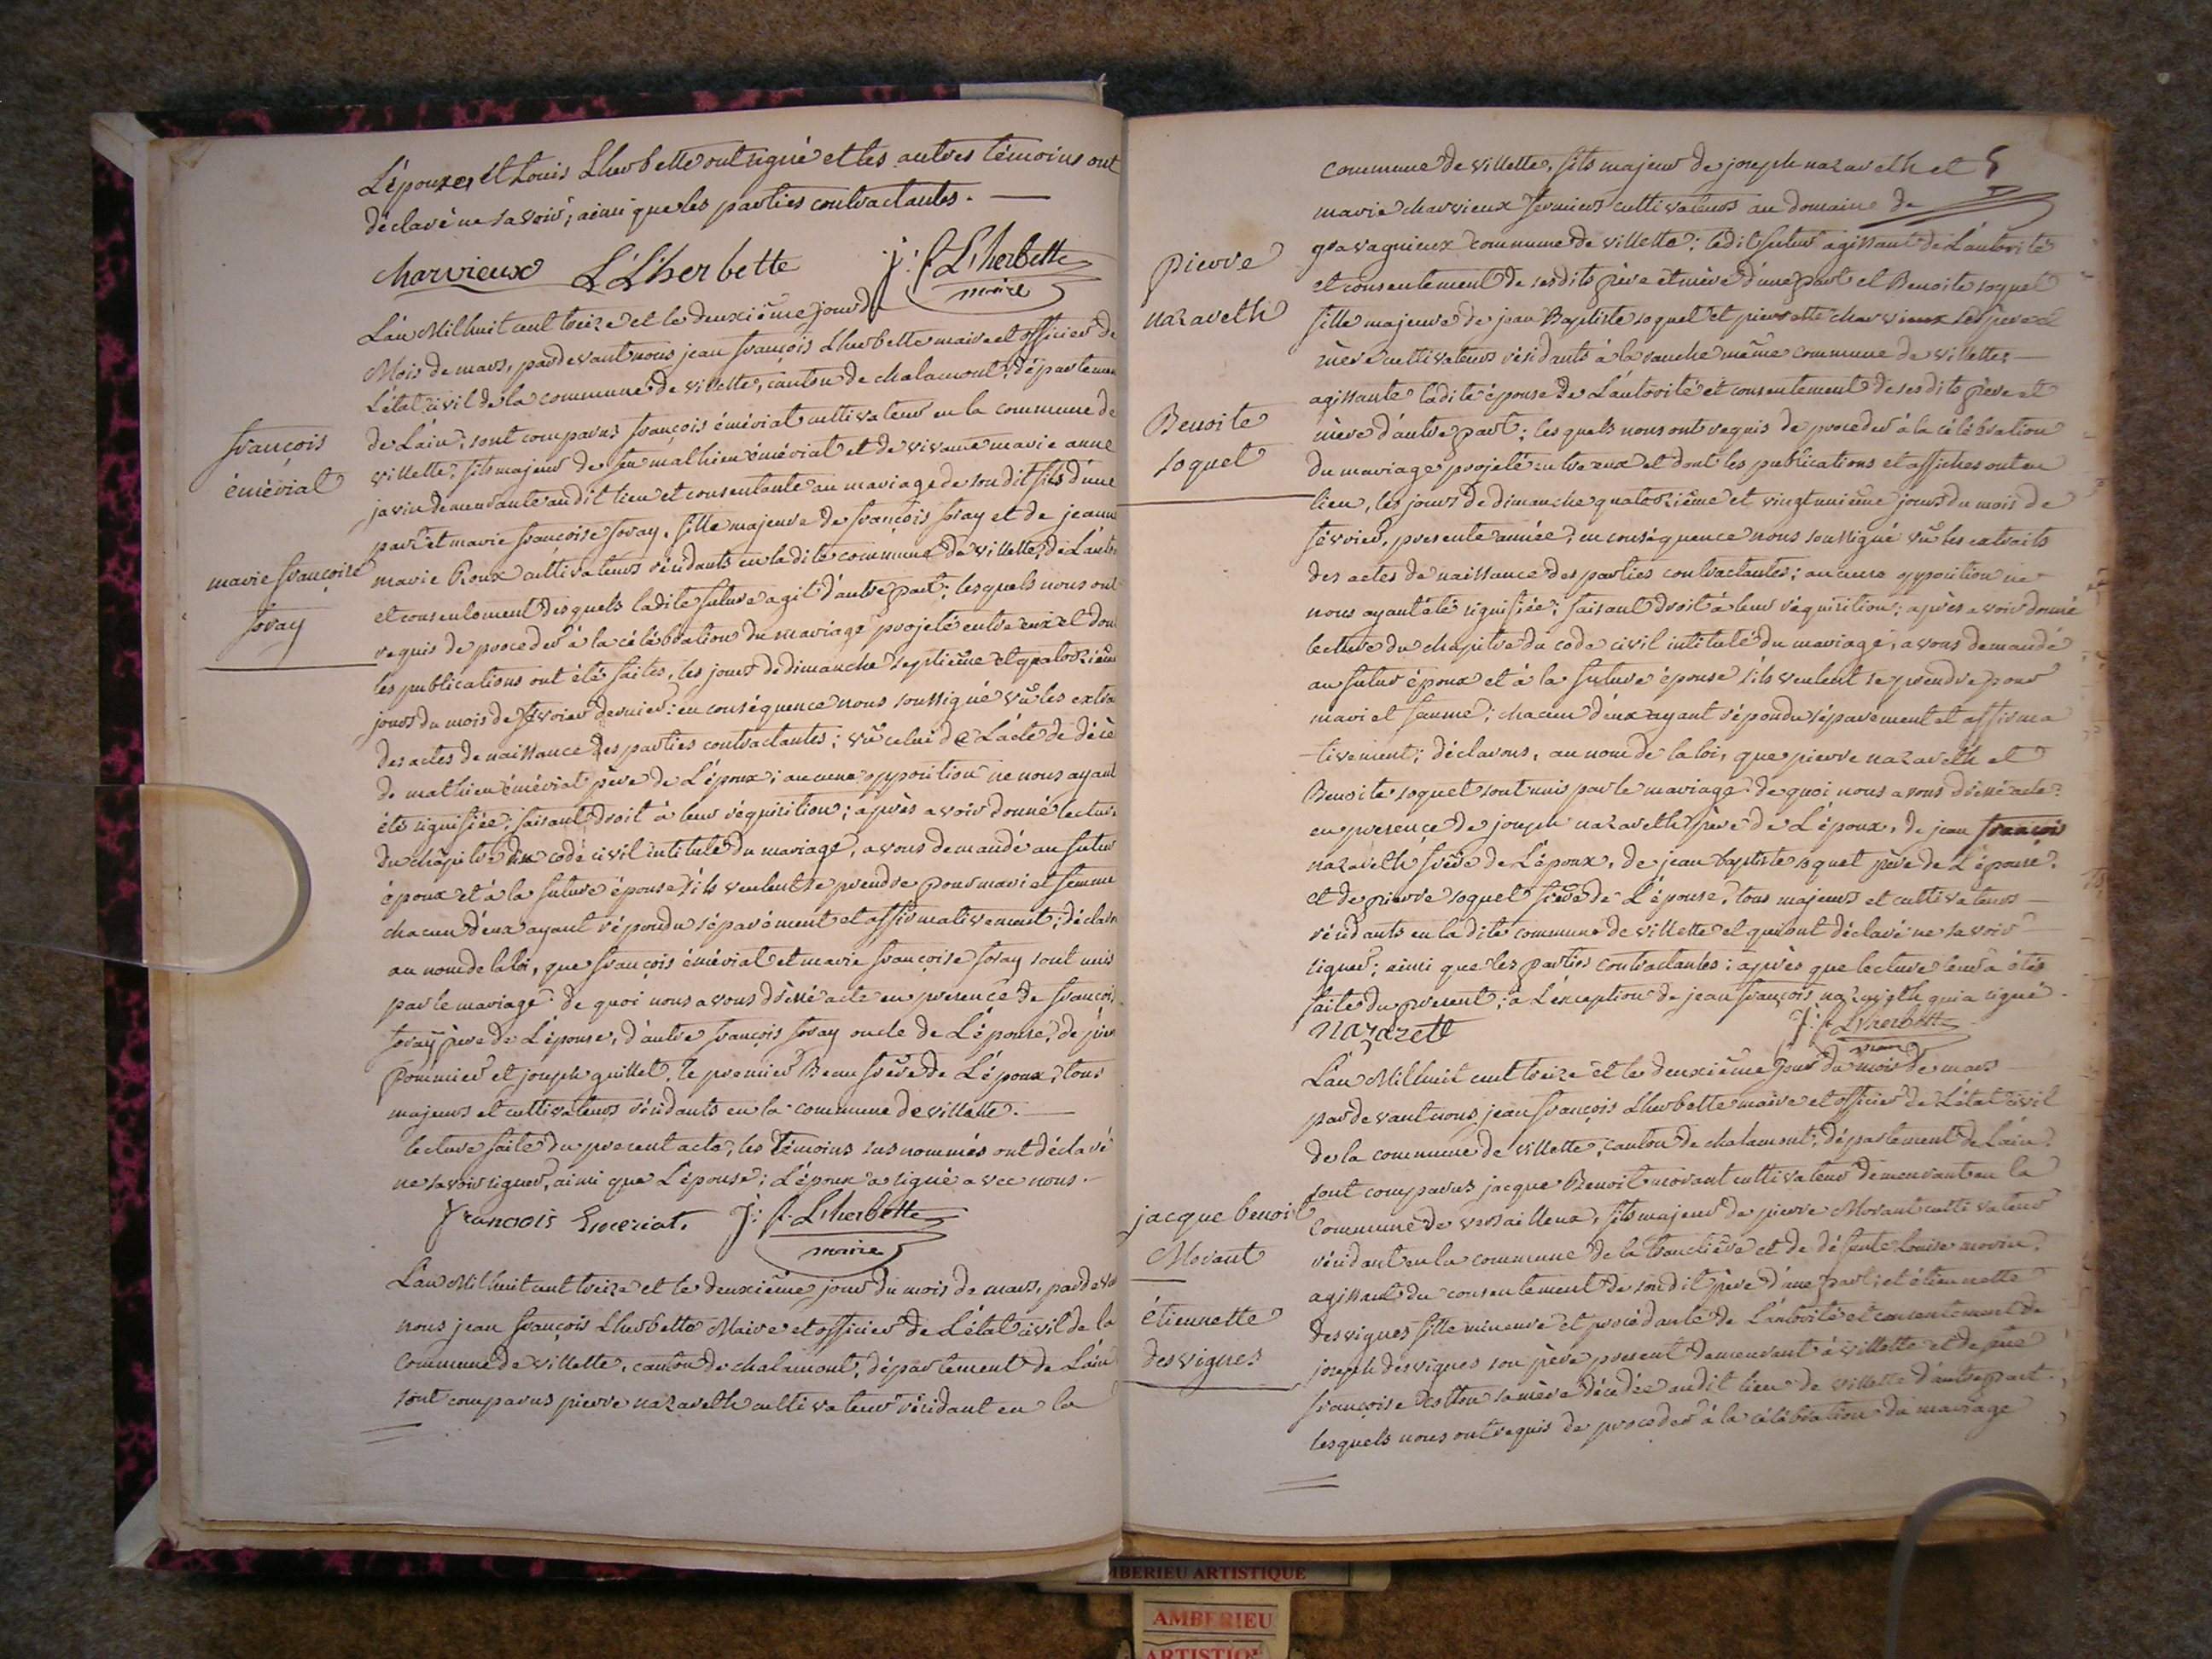 L'épouse, et Louis Lherbette ont signé et les autres témoins ont
déclaré ne savoir; ainsi que les parties contractantes.
charvieux L Lherbette J: f. Lherbette
maire
L'an Mil huit cent treize et le deuxième jour du
Mois de mars, pardevant nous jean françois Lherbette maire et officier de
L'état civil de la commune de villette, canton de chalamont, départemen
de L'ain; sont comparus françois émériat cultivateur en la commune de
villette; fils majeur de feu mathieu émériat et de vivante marie anne
javin demeurante audit lieu et consentante au mariage de son dit fils d'une
part et marie françoise foray, fille majeure de françois foray et de jeanne
marie Roux cultivateurs résidants en ladite commune de villette, de L'auto
et consentement desquels ladite future agit d'autre part; lesquels nous ont
requis de proceder à la célébration du mariage projeté entre eux et don
les publications ont été faites, les jours de dimanche septième et quatorzième
jours du mois de fevrier dernier: en conséquence nous soussigné vû les extra
des actes de naissance des parties contractantes; vû celui de L'acte de décè
de mathieu émériat père de L'époux; aucune opposition ne nous ayant
été signifiée; faisant droit à leur réquisition; après avoir donné lecture
du chapitre du code civil intitulé du mariage, avons demandé au futur
époux et à la future épouse s'ils veulent se prendre pour mari et femme
chacun d'eux ayant répondu séparément et affirmativement; déclaro
au nom de la loi, que françois émériat et marie françoise foray sont unis
par le mariage. de quoi nous avons dréssé acte en presence de françois
foray père de L'épouse, d'autre françois foray oncle de L'épouse, de pier
Pommier et joseph guillet, le premier Beau frère de L'époux, tous
majeurs et cultivateurs résidants en la commune de villette.
lecture faite du precent acte, les témoins susnommés ont déclaré
ne savoir signer, ainsi que L'épouse; L'époux a signé avec nous.
françois Emeriat. J: f. Lherbette
maire
L'an Mil huit cent treize et le deuxième jour du mois de mars, pardeva
nous jean françois Lherbette Maire et officier de L'état civil de la
Commune de villette, canton de chalamont, département de L'ain
sont comparus pierre nazareth cultivateur résidant en la
françois
émériat
marie françoise
foray
commune de villette, fils majeur de joseph nazareth et
marie charvieux fermiers cultivateurs au domaine de
gravagnieux commune de villette; ledit futur agissant de L'autorité
et consentement de sesdits père et mère d'une part et Benoite soquet
fille majeure de jean Baptiste soquet et pierrette charvieux ses pere et
mère cultivateurs résidants à la ranche même commune de villette
agissante ladite épouse de L'autorité et consentement de sesdits père et
mère d'autre part; lesquels nous ont requis de proceder à la célébration
du mariage projeté entre eux et dont les publications et affiches ont eu
lieu, les jours de dimanche quatorzième et vingtunième jours du mois de
février, presente année; en conséquence nous soussigné vû les extraits
des actes de naissance des parties contractantes; aucune opposition ne
nous ayant été signifiée; faisant droit à leur réquisition; après avoir donné
lecture du chapitre du code civil intitulé du mariage, avons demandé
au futur époux et à la future épouse s'ils veulent se prendre pour
mari et femme; chacun d'eux ayant répondu séparement et affirma
-tivement; déclarons, au nom de la loi, que pierre nazareth et
Benoite soquet sont unis par le mariage. de quoi nous avons dréssé acte
en presence de joseph nazareth père de L'époux, de jean françois
nazareth frère de L'époux, de jean baptiste soquet père de L'épouse,
et de pierre soquet frère de L'épouse, tous majeurs et cultivateurs
résidants en ladite commune de villette et qui ont déclaré ne savoir
signer; ainsi que les parties contractantes; après que lecture leur a été
faite du present; à L'exception de jean françois nazareth qui a signé.
Nazareth J: f. Lherbette
maire
L'an Mil huit cent treize et le deuxième jour du mois de mars
pardevant nous jean françois Lherbette maire et officier de L'état civil
de la commune de villette, canton de chalamont, département de L'ain.
sont comparus jacque Benoit morant cultivateur demeurant en la
Commune de versailleux, fils majeur de pierre Morant cultivateur
résidant en la commune de la tranclière et de défunte Louise morin,
agissant du consentement de son dit père d'une part; et étiennette
desvignes fille mineure et procédante de L'autorité et consentement de
joseph desvignes son père present demeurant à villette et de feue
françoise sa mère décédée audit lieu de villette d'autre part.
lesquels nous ont requis de proceder à la célébration du mariage
pierre
nazareth
Benoite
soquet
jacque benoit
Morant
étiennette
desvignes
AMBERIEU ARTISTIQUE
AMBERIEU
ARTISTIQUE